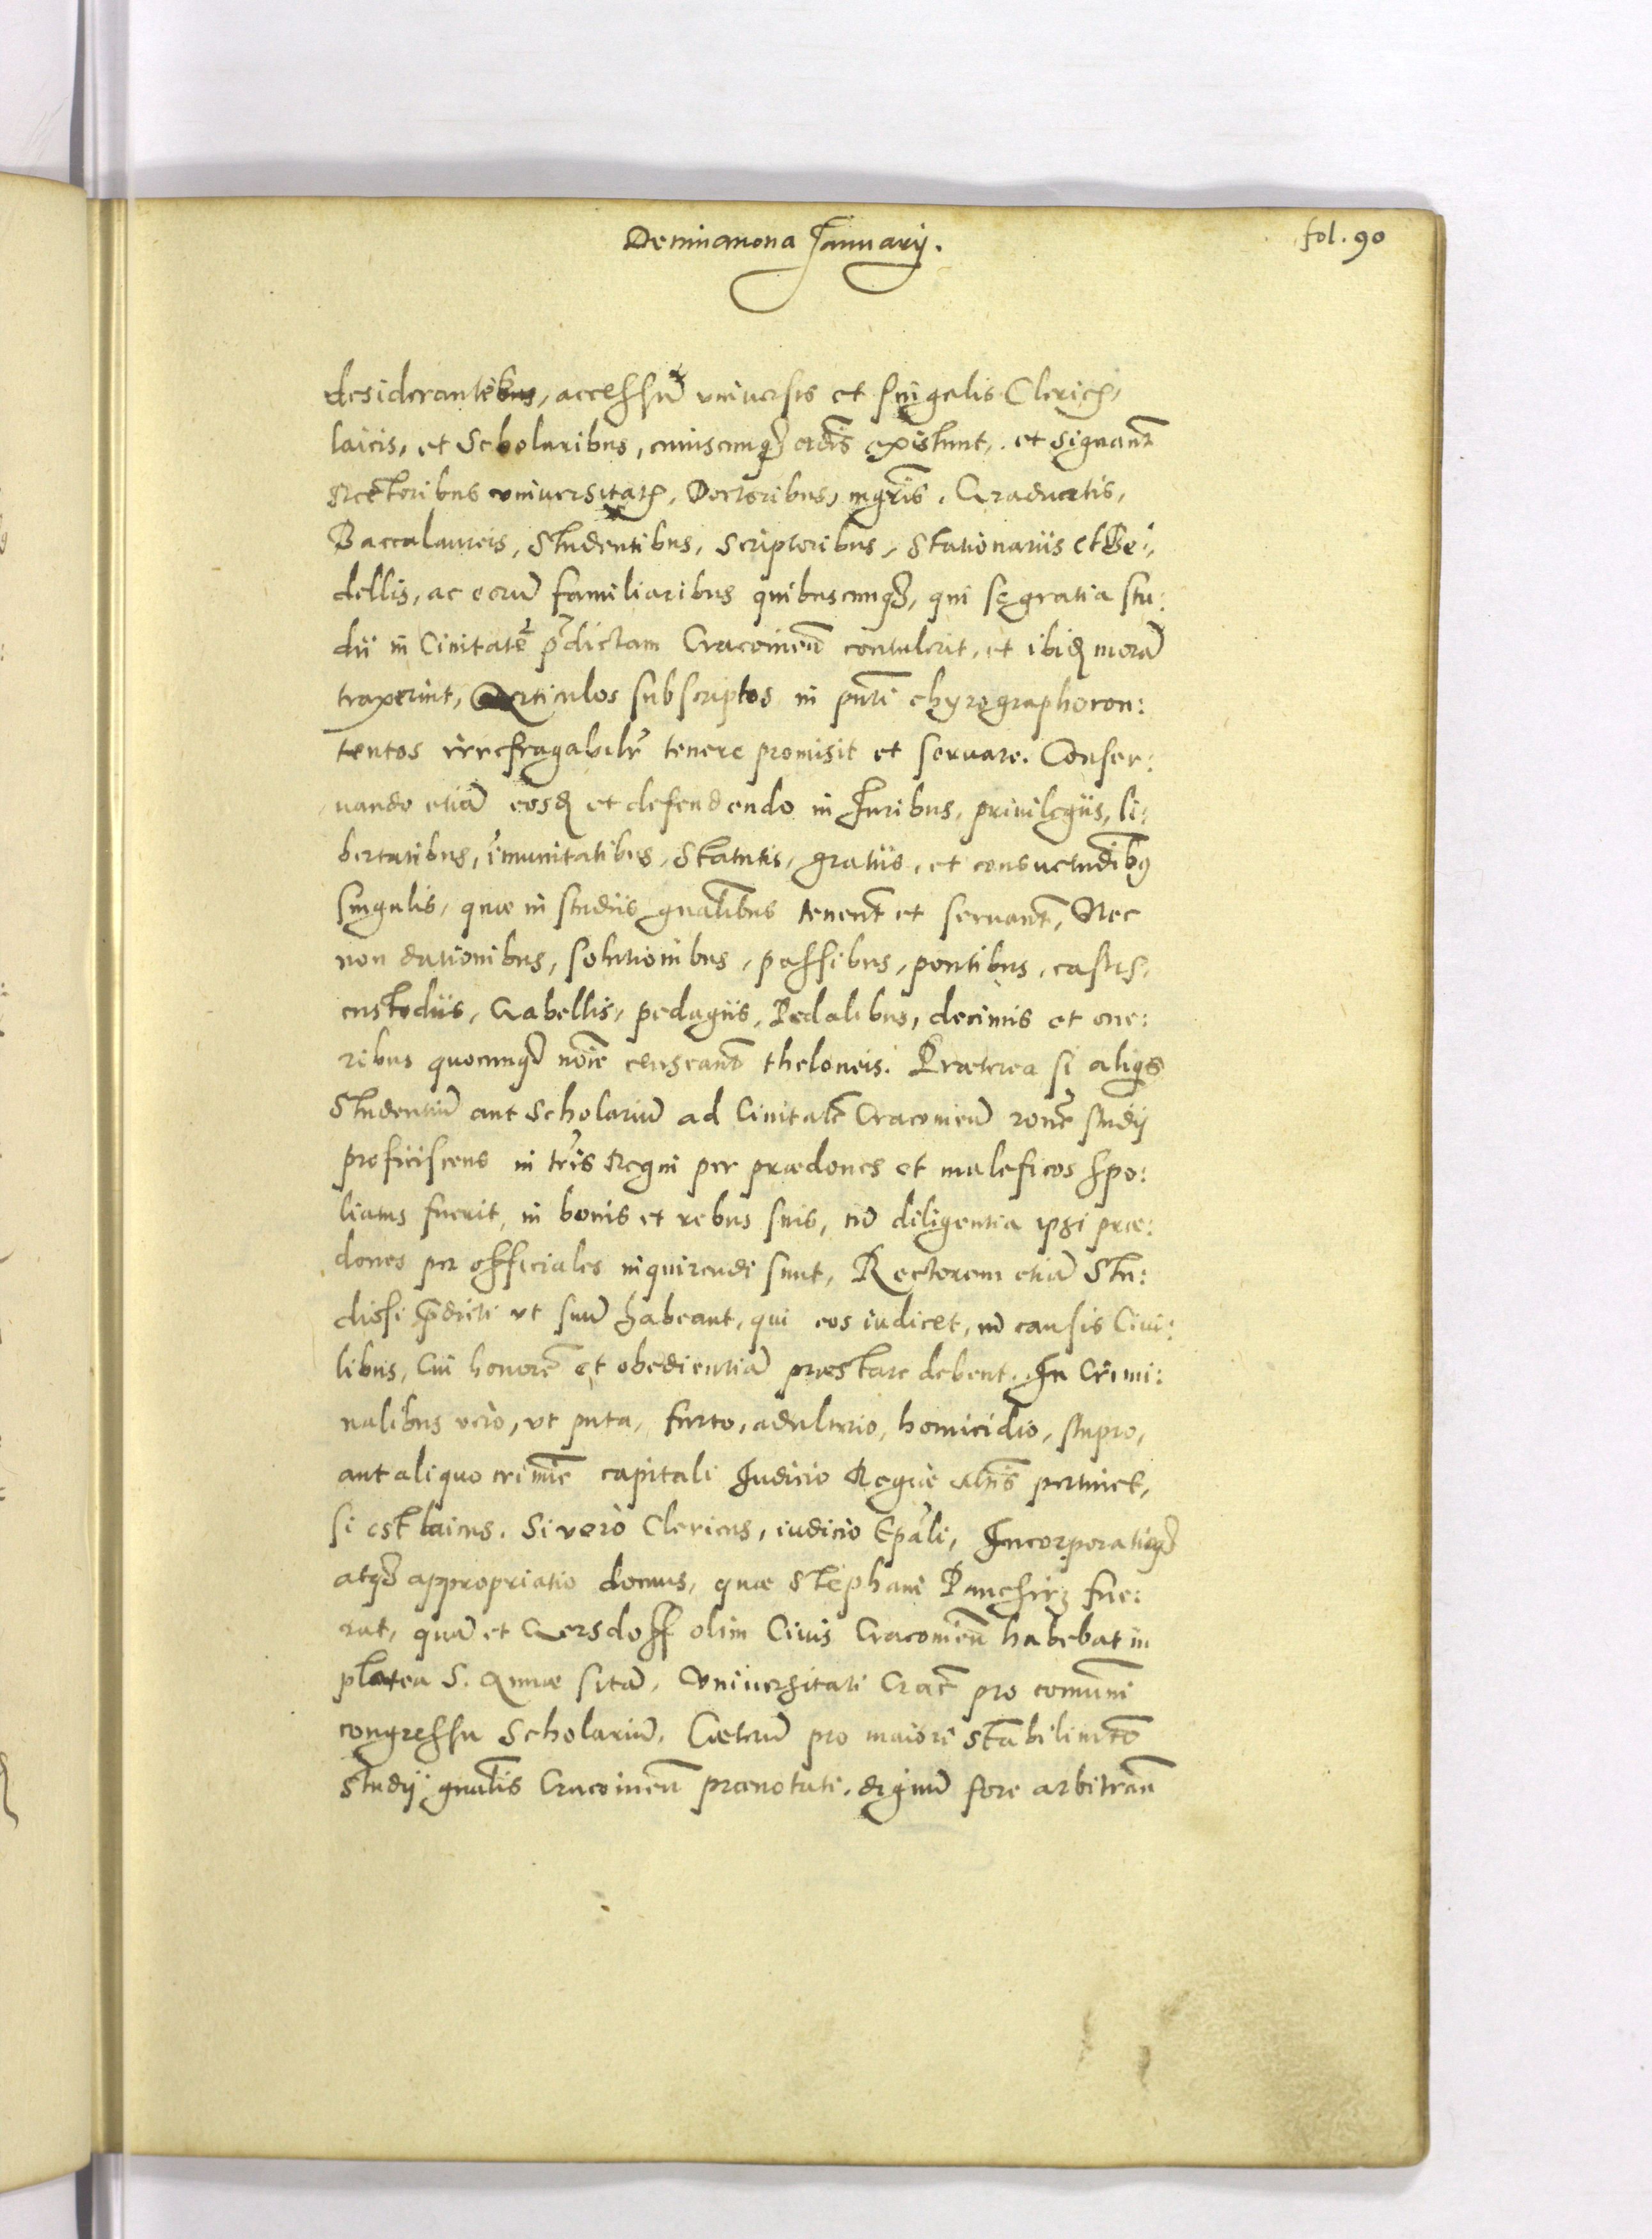 Decimanona Januarij.
fol. 90
desiderantibus, accessũ vniuersis et singulis Clericis,
laicis, et Scholaribus, cuiuscunq; ordĩs existunt, et signant̃
Rectoribus vniuersitatis, Doctoribus, mgr̃is, Graduatis,
Baccalaureis, Studentibus, Scriptoribus, Stationariis et Be:
dellis, ac eorũ familiaribus quibuscunq;, qui se gratia stu:
dii in Ciuitatẽ p̃dictam Cracouieñ contulerit, et ibid. morã
traxerint, Articulos subscriptos in pñti chyrographo con:
tentos irrefragabilr̃ tenere promisit et seruare. Conser:
uando etiã eosd. et defendendo in Juribus, priuilegiis, li:
bertatibus, im̃unitatibus, Statutis, gratiis, et consuetudĩbus
singulis, quæ in studiis gñalibus tenent̃ et seruant̃, Nec
non dationibus, solutionibus, passibus, pontibus, castris,
custodiis, Gabellis, pedagiis, Pedalibus, decimis et one:
ribus quocunq; nõie censeant̃ theloneis. Præterea si aliqs
Studentiũ aut Scholariũ ad Ciuitatẽ Cracouieñ rõne studij
proficiscens in tr̃is Regni per prædones et maleficos spo:
liatus fuerit, in bonis et rebus suis, cũ diligentia ipsi præ:
dones per officiales inquirendi sunt, Rectorem etiã Stu:
dissi p̃dicti vt suũ habeant, qui eos iudicet, in causis Ciui:
libus, Cui honorẽ et obedientiã præstare debent. In Crimi:
nalibus verò, vt puta, furto, adulterio, homicidio, stupro,
aut aliquo crimĩe capitali Judicio Regiæ Mtis pertinet,
si est laicus. Si verò Clericus, iudicio Epãli, Incorporatioq;
atq; appropriatio domus, quæ Stephani Panchirz fue:
rat, quã et Gersdoff olim Ciuis Cracouieñ habebat in
platea S. Annæ sitã, Vniuersitati Crac̃ pro com̃uni
congressu Scholariũ. Cæterũ pro maiori stabilimẽto
studij gñalis Cracouieñ prænotati, dignũ fore arbitram̃